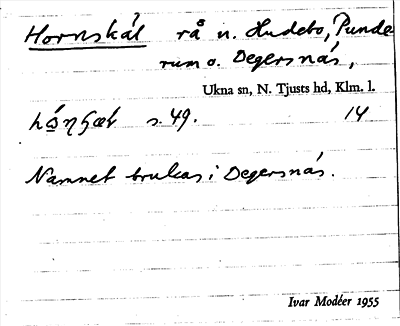 Hornskål rå n. Hudebo, Punde
rum o. Degersnäs,
Ukna sn, N. Tjusts hd, Klm. l.
s. 49. 14
Namnet brukas i Degersnäs.
Ivar Modéer 1955